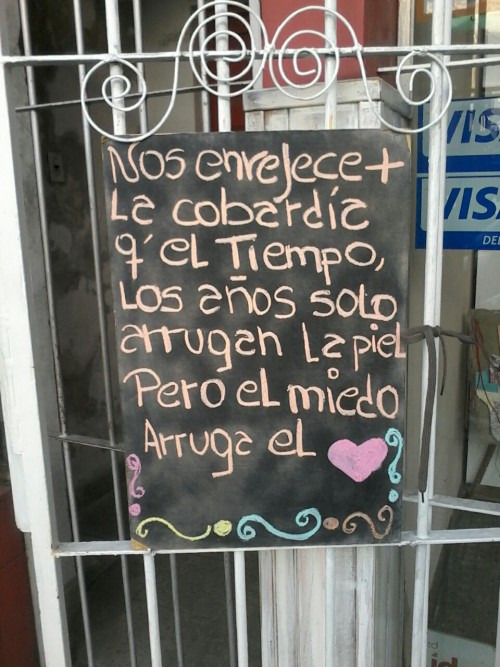 Nos envejece +
La cobardía
q' el Tiempo,
Los años solo
arrugan La piel
Pero el miedo
Arruga el
VISA
VISA